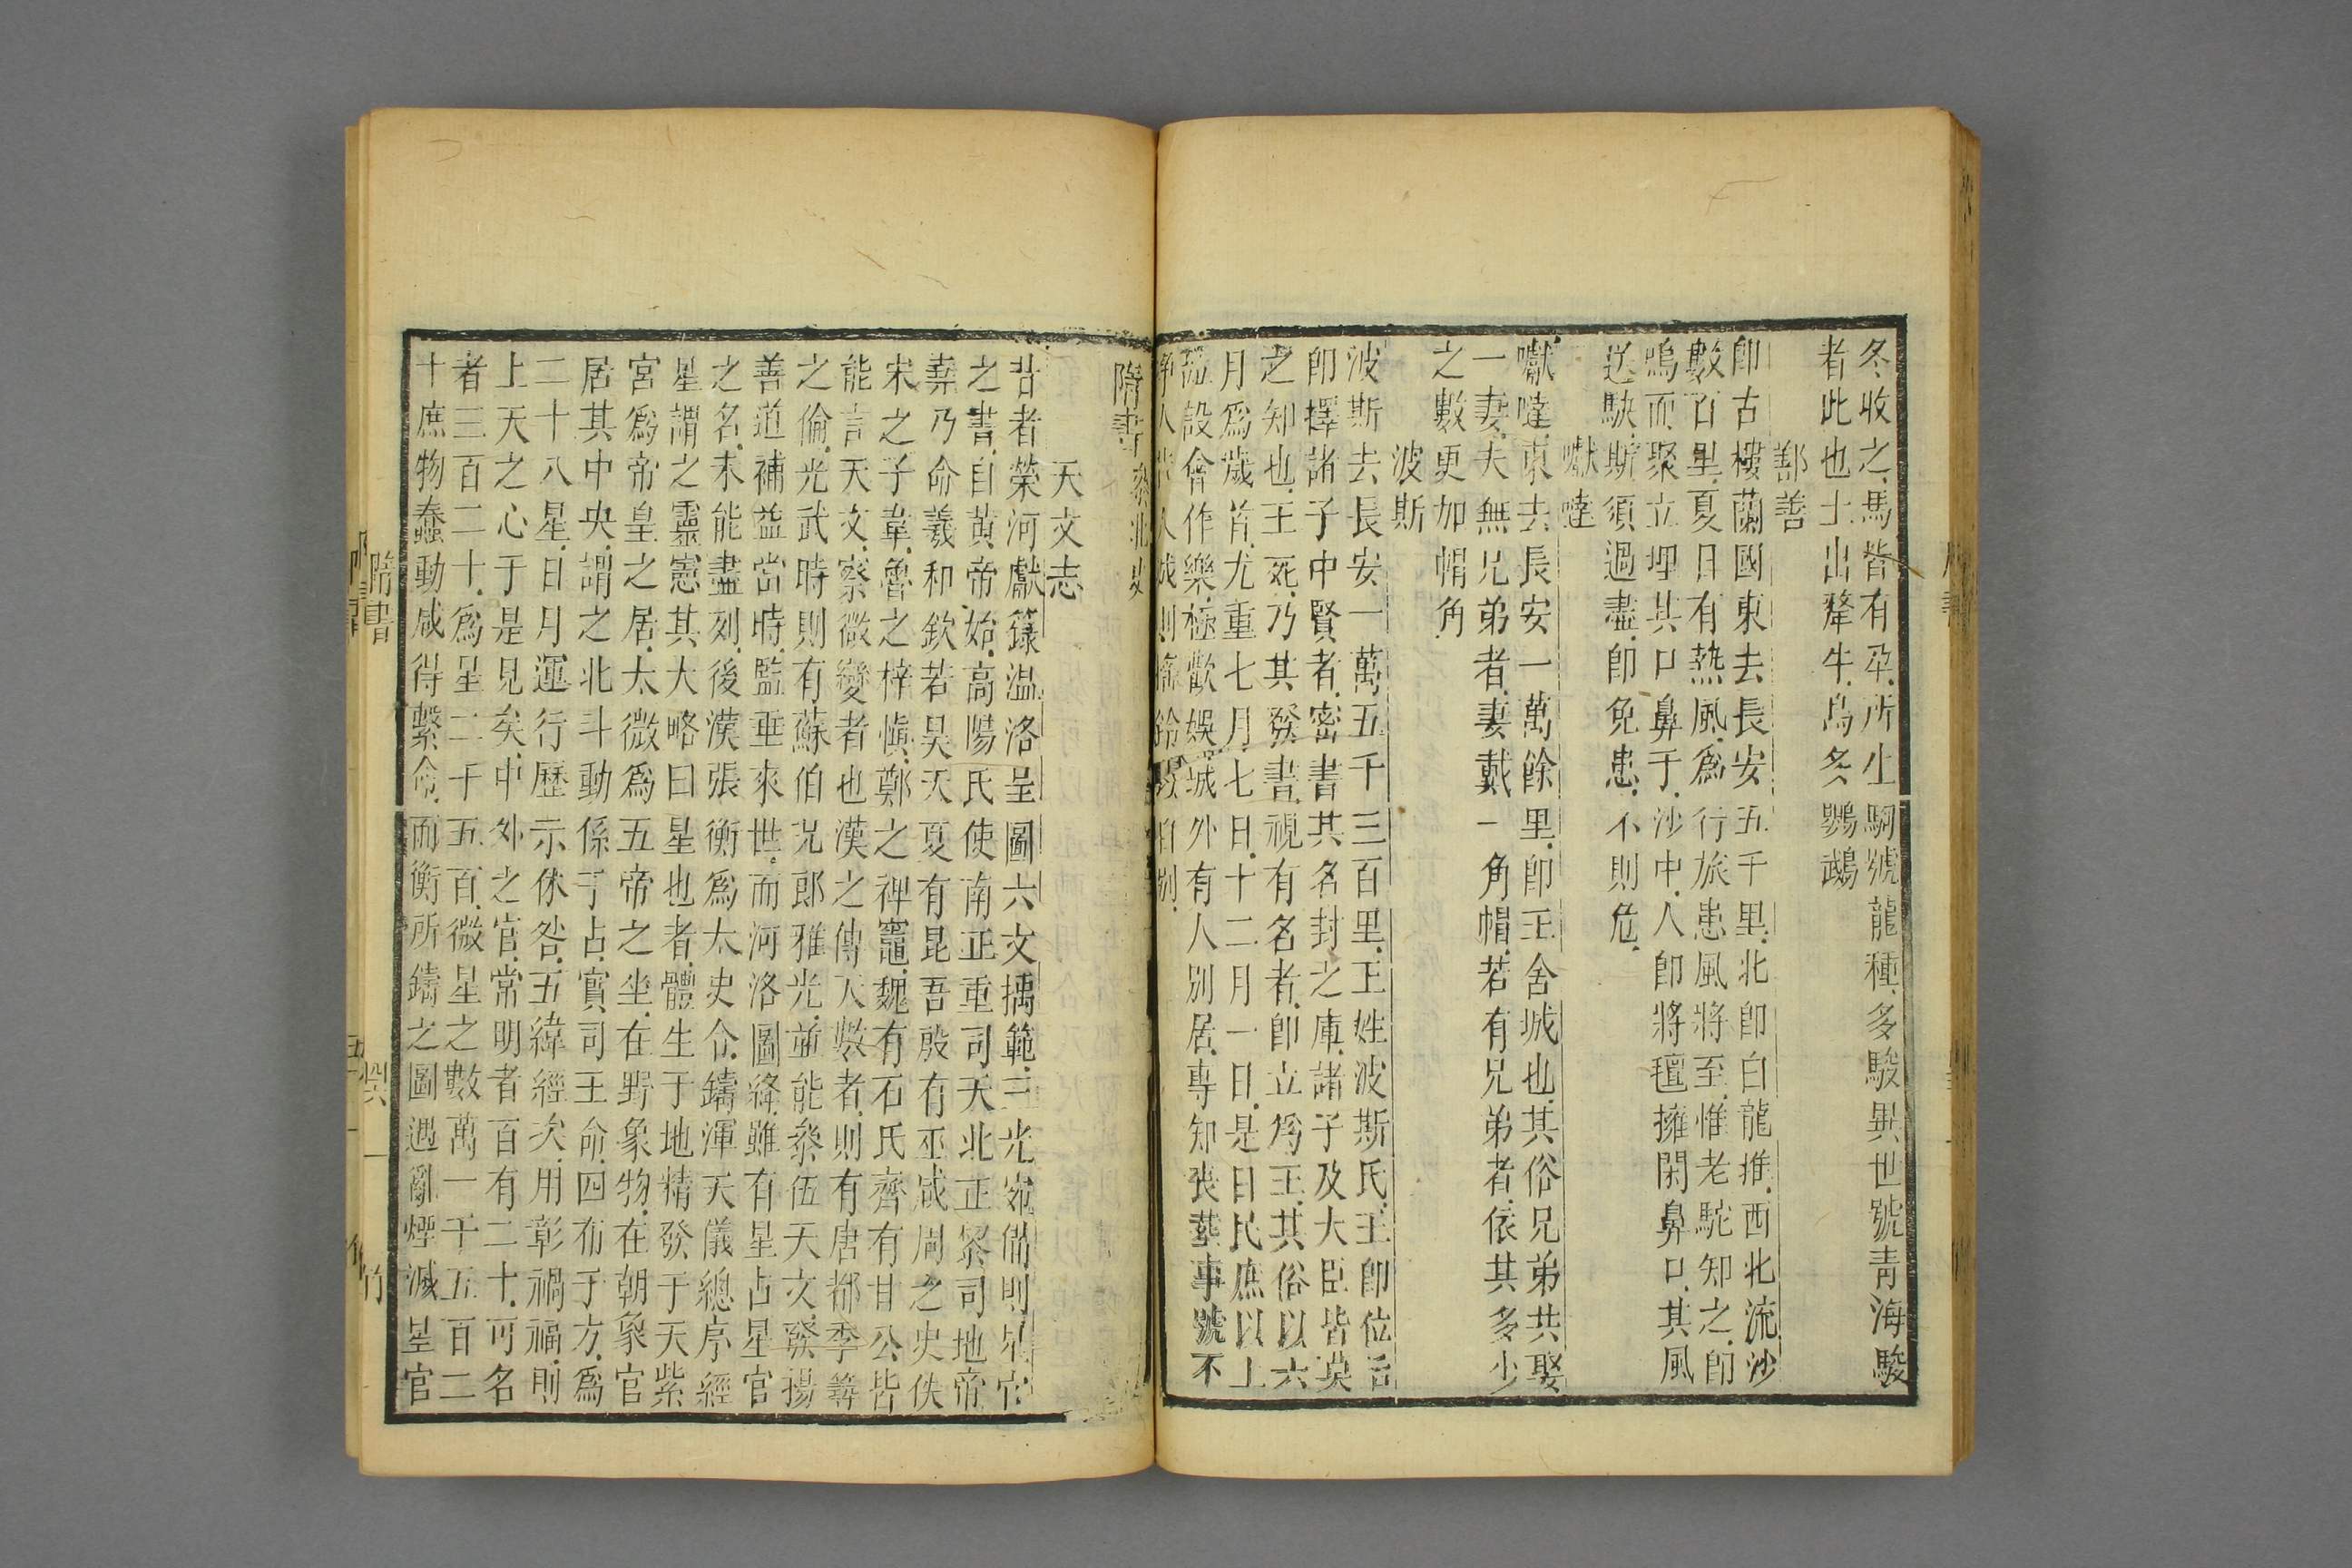 冬收之馬皆有孕所生駒號龍種多駿異世號青海駿
者此也土出犛牛鳥多鸚鵡
鄯善
卽古樓蘭國東去長安五千里北卽白龍堆西北流沙
數百里夏日有熱風爲行旅患風將至惟老駝知之卽
鳴而聚立埋其口鼻于沙中人卽將氊擁閉鼻口其風
迅駃斯須過盡卽免患不則危
嚈噠
嚈噠東去長安一萬餘里卽王舍城也其俗兄弟共娶
一妻夫無兄弟者妻戴一角帽若有兄弟者依其多少
之數更加帽角
波斯
波斯去長安一萬五千三百里王姓波斯氏王卽位后
卽擇諸子中賢者密書其名封之庫諸子及大臣皆莫
之知也王死乃其發書視有名者卽立爲王其俗以六
月爲歲首尤重七月七日十二月一日是日民庶以上
設會作樂極歡娛城外有人別居專知喪葬事號不
淨人若入城則搖鈴自別
隋書
天文志
昔者榮河獻籙温洛呈圖六文摛範三光宛備則星官
之書自黃帝始高陽氏使南正重司天北正黎司地帝
堯乃命羲和欽若昊天夏有昆吾殷有巫咸周之史佚
宋之子韋魯之梓慎鄭之裨竈魏有石氏齊有甘公皆
能言天文察微變者也漢之傳天數者則有唐都李尋
之倫光武時則有蘇伯況郎雅光並能參伍天文發揚
善道補益當時監垂來世而河洛圖緯雖有星占星官
之名未能盡刻後漢張衡爲太史令鑄渾天儀總序經
星謂之靈憲其大略曰星也者體生于地精發于天紫
宮爲帝皇之居太微爲五帝之坐在野象物在朝象官
居其中央謂之北斗動係于占實司王命四布于方爲
二十八星日月運行歷示休咎五緯經次用彰禍福則
上天之心于是見矣中外之官常明者百有二十可名
者三百二十爲星二千五百微星之數萬一千五百二
十庶物蠢動咸得繫命而衡所鑄之圖遇亂煙滅星官
隋書